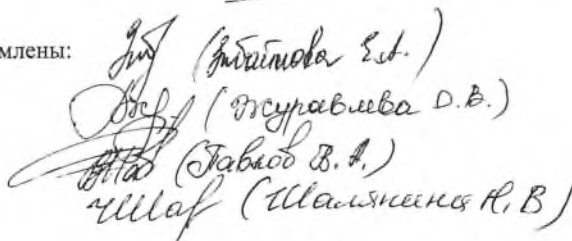 млены:
(Зибаимова Е.А.)
(Журавлева О.В.)
(Павлов В.А.)
(Шалянина Н.В)